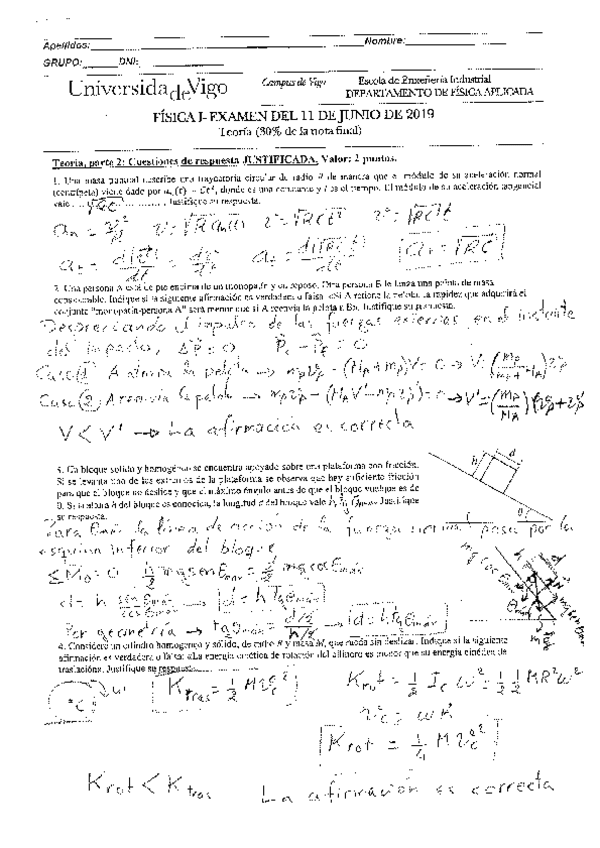 Apellidos: Nombre:
GRUPO: DNI:
Universidade de Vigo Campus de Vigo Escola de Enxeñería Industrial
DEPARTAMENTO DE FÍSICA APLICADA
FÍSICA I- EXAMEN DEL 11 DE JUNIO DE 2019
Teoría (30% de la nota final)
Teoría, parte 2: Cuestiones de respuesta JUSTIFICADA. Valor: 2 puntos.
1. Una masa puntual describe una trayectoria circular de radio R de manera que el módulo de su aceleración normal
(centrípeta) viene dado por aₙ(t) = Ct², donde es una constante y t es el tiempo. El módulo de su aceleración tangencial
vale √RC Justifique su respuesta.
aₙ = v²/R v = √(R aₙ(t)) v = √(RCt²) v = √(RC) t
aₜ = d|v|/dt = dv/dt aₜ = d(√(RC) t)/dt aₜ = √(RC)
2. Una persona A está de pie encima de un monopatín y en reposo. Otra persona B le lanza una pelota de masa
considerable. Indique si la siguiente afirmación es verdadera o falsa: «Si A retiene la pelota, la rapidez que adquirirá el
conjunto "monopatín-persona A" será menor que si A reenvía la pelota a B». Justifique su respuesta.
Despreciando el impulso de las fuerzas externas en el instante
del impacto, ΔP = 0
Caso 1 A atrapa la pelota → m_p v_p − (M_A + m_p) V = 0 → V = (m_p/(m_p + M_A)) v_p
Caso 2 A reenvía la pelota → m_p v_p − (M_A V' − m_p v'_p) = 0 → V' = (m_p/M_A)(v_p + v'_p)
V < V' → La afirmación es correcta
3. Un bloque sólido y homogéneo se encuentra apoyado sobre una plataforma con fricción.
Si se levanta uno de los extremos de la plataforma se observa que hay suficiente fricción
para que el bloque no deslice y que el máximo ángulo antes de que el bloque vuelque es de
θ. Si la altura h del bloque es conocida, la longitud d del bloque vale h tg θmáx Justifique
su respuesta.
h d
θ
Para θmáx la línea de acción de la fuerza normal pasa por la
esquina inferior del bloque
ΣM₀ = 0 h/2 mg sen θmáx = d/2 mg cos θmáx
d = h sen θmáx / cos θmáx → d = h tg θmáx
Por geometría → tg θmáx = (d/2)/(h/2) → d = h tg θmáx
4. Considere un cilindro homogéneo y sólido, de radio R y masa M, que rueda sin deslizar. Indique si la siguiente
afirmación es verdadera o falsa: «La energía cinética de rotación del cilindro es menor que su energía cinética de
traslación». Justifique su respuesta.
K_tras = ½ M v_c² K_rot = ½ I_c ω² = ½ ½ MR²ω²
v_c = ωR
K_rot = ¼ M v_c²
K_rot < K_tras La afirmación es correcta